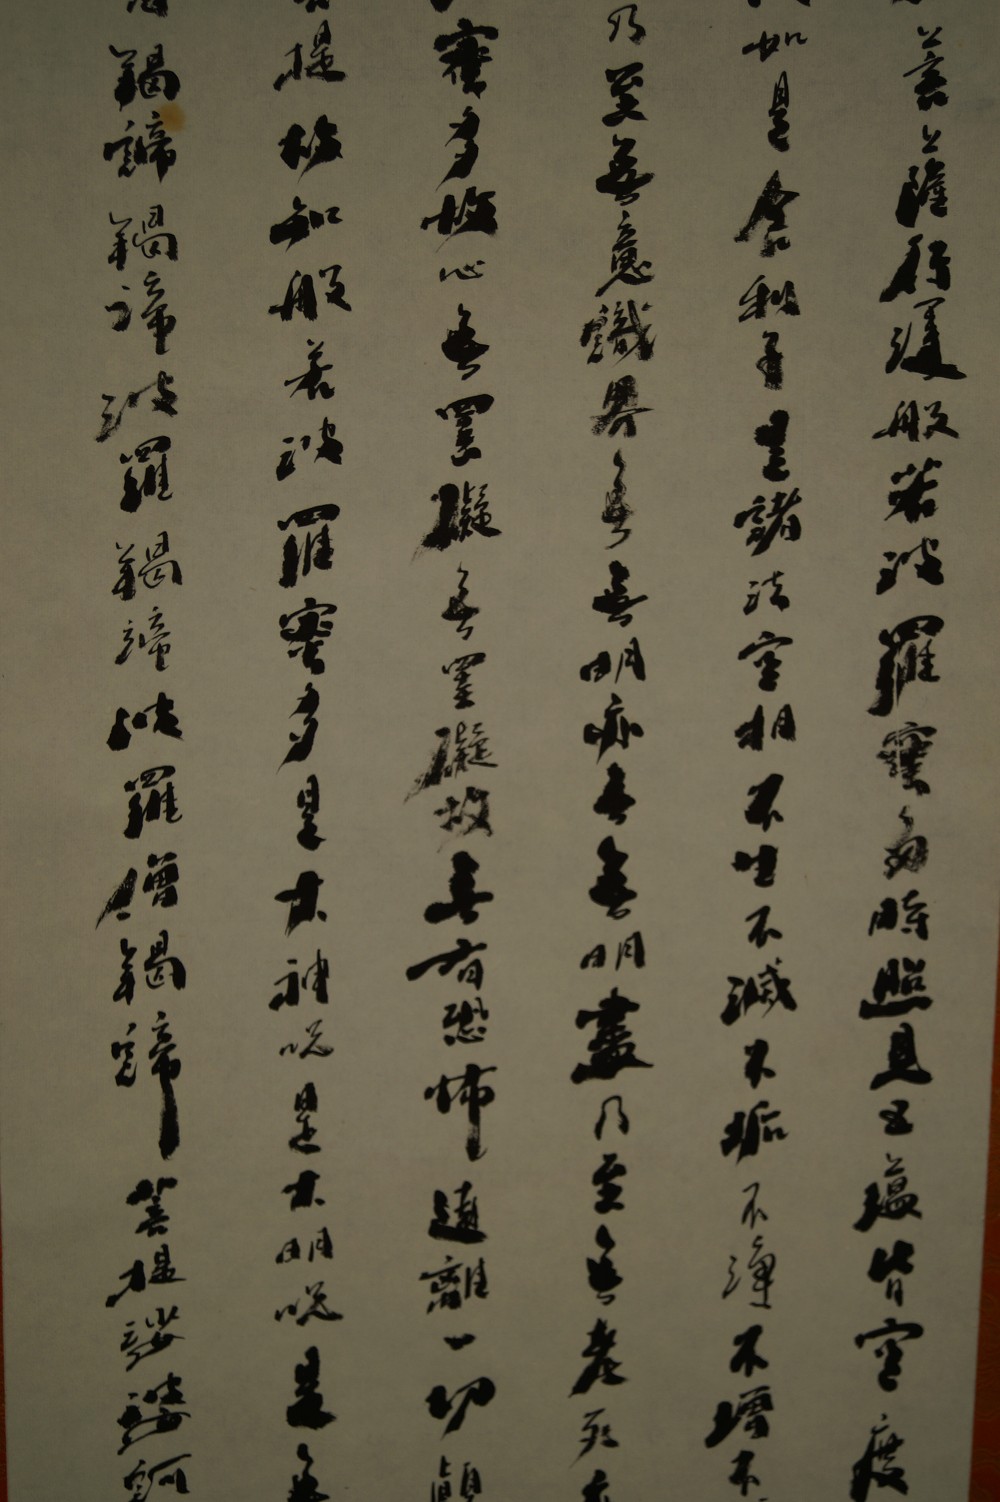 菩薩行深般若波羅蜜多時照見五蘊皆空度
如是舍利子是諸法空相不生不滅不垢不淨不增不
乃至無意識界無無明亦無無明盡乃至無老死
蜜多故心無罣礙無罣礙故無有恐怖遠離一切顛
提故知般若波羅蜜多是大神咒是大明咒是無
羯諦羯諦波羅羯諦波羅僧羯諦菩提娑婆訶